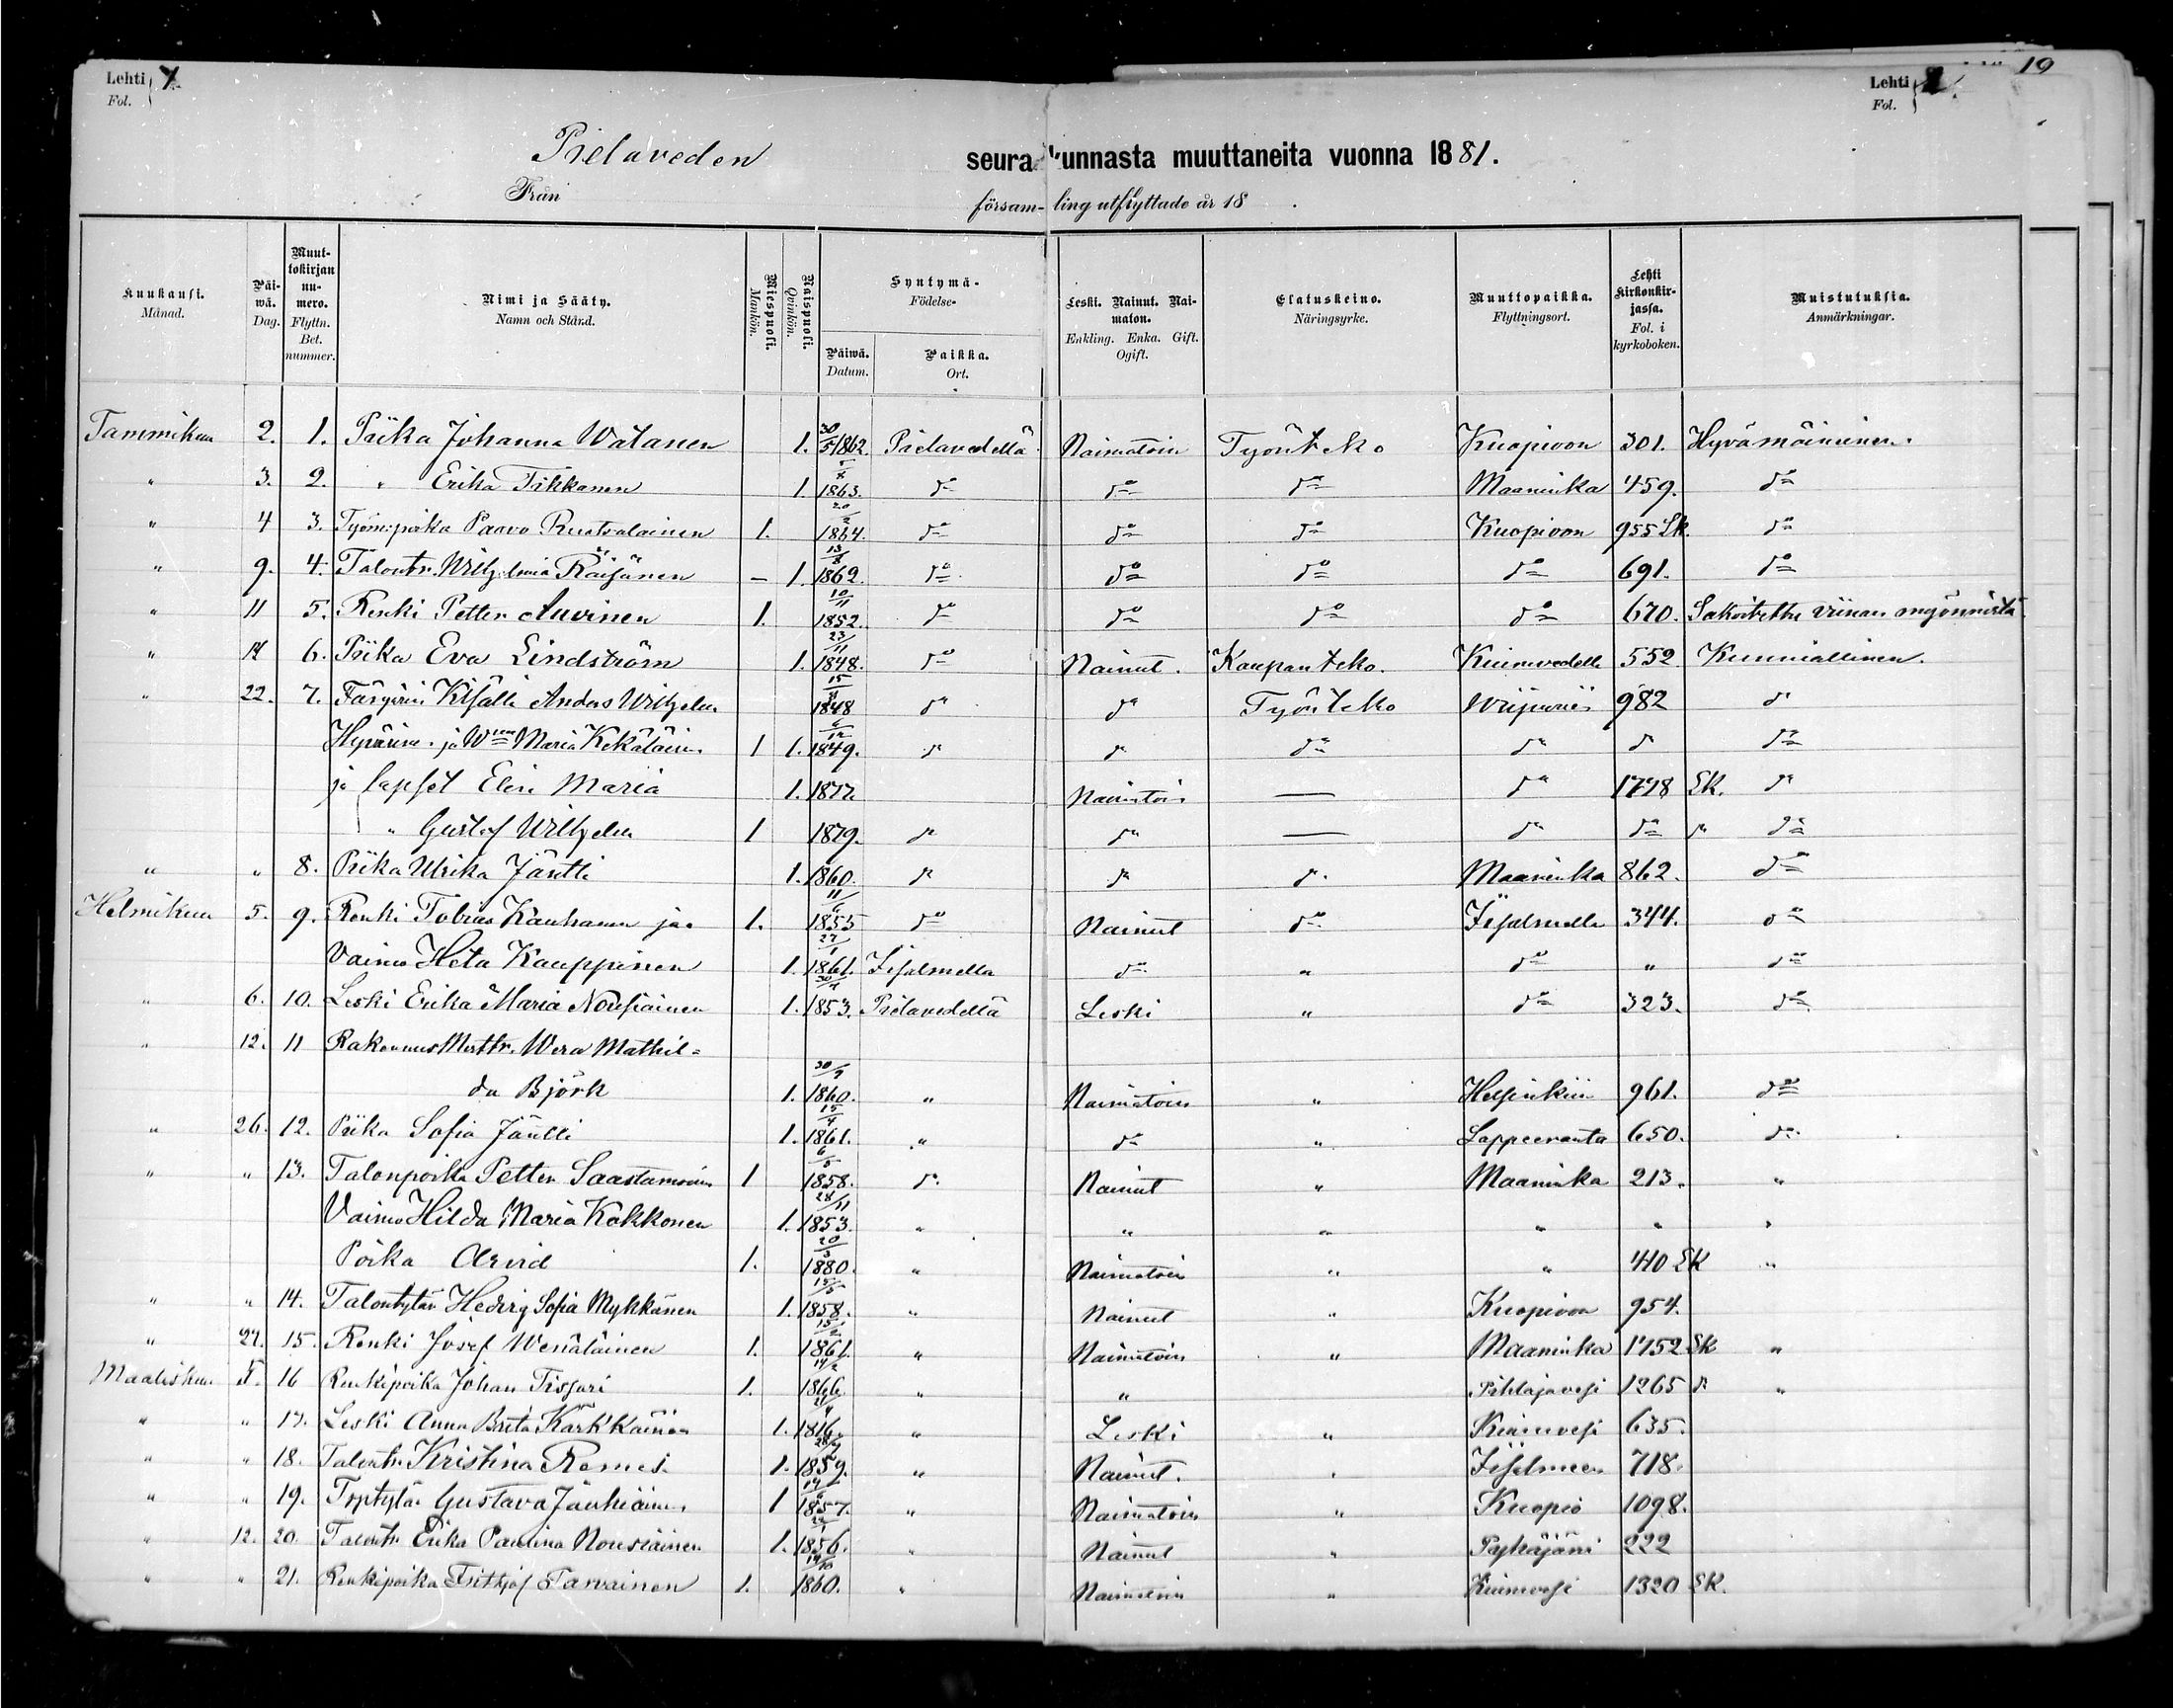 Lehti
Fol.
Lehti
Fol.
19
Pielaveden seurakunnasta muuttaneita vuonna 1881.
Från församling utflyttade år 18
Kuukausi. Månad.
Päiwä. Dag.
Muuttokirjan numero. Flyttn. Bet. nummer.
Nimi ja Sääty. Namn och Stånd.
Miespuoli. Mankön.
Naispuoli. Qvinkön.
Syntymä- Födelse-
Päiwä. Datum.
Paikka. Ort.
Leski. Nainut. Naimaton. Enkling. Enka. Gift. Ogift.
Elatuskeino. Näringsyrke.
Muuttopaikka. Flyttningsort.
Lehti Kirkonkirjassa. Fol. i kyrkoboken.
Muistutuksia. Anmärkningar.
Tammikuu 2. 1. Piika Johanna Watanen 1. 30/5 1862. Pielavedellä Naimatoin Työnteko Kuopioon 301. Hyvämaininen.
" 3. 2. " Erika Tikkanen 1. 1863. do do do Maaninka 459. do
" 4 3. Työm: poika Paavo Ruotsalainen 1. 20/2 1864. do do do Kuopioon 955 Lk. do
" 9. 4. Talontr. Wilhelmia Räisänen - 1. 13/8 1862. do do do do 691. do
" 11 5. Renki Petter Auvinen 1. 10/11 1852. do do do do 670. Sakoitettu viinan myönnistä
" 14 6. Piika Eva Lindström 1. 23/11 1848. do Nainut. Kaupanteko. Kiuruvedelle 552 Kunniallinen.
" 22. 7. Färgäri Kisälli Anders Wilhelm 15/11 1848 do do Työnteko Wiipuriin 982 do
Hyvärin. ja Wmo Maria Kekäläin. 1 1. 6/12 1849. do do do do do do
ja lapset Elin Maria 1. 1877. Naimatoin — do 1778 Lk. do
" Gustaf Wilhelm 1 1879. do do — do do do do
" " 8. Piika Ulrika Jäntti 1. 1860. do do do. Maaninka 862. do
Helmikuu 5. 9. Renki Tobias Kauhanen ja 1. 11/6 1855 do Nainut do Iisalmella 344. do
Vaimo Heta Kauppinen 1. 27/1 1861. Iisalmella do " do " do
" 6. 10. Leski Erika Maria Nousiainen 1. 1853. Pielavedellä Leski " do 323. do
" 12. 11 Rakennus Mesttr. Wera Mathil=
da Björk 1. 30/9 1860. " Naimatoin " Helsinkiin 961. do
" 26. 12. Piika Sofia Jäntti 1. 15/4 1861. " do " Lappeeranta 650. do
" " 13. Talonpoika Petter Saastamoin 1 6/5 1858. do. Nainut " Maaninka 213. "
Vaimo Hilda Maria Kokkonen 1. 28/11 1853. " " " " " "
Poika Arvid 1. 20/3 1880. " Naimatoin " " 410 Lk "
" " 14. Talontytär Hedvig Sofia Mykkänen 1. 15/5 1858. " Nainut " Kuopioon 954.
" 27. 15. Renki Josef Wenäläinen 1. 15/2 1861. " Naimatoin " Maaninka 1752 Lk "
Maaliskuu 5. 16 Renkipoika Johan Tissari 1. 14/2 1866. " " Pihlajavesi 1265 do "
" " 17. Leski Anna Brita Kärkkäinen 1. 1816. " Leski " Kiuruvesi 635.
" " 18. Talontr. Kristina Remes. 1. 28/9 1859. " Nainut. " Iisalmeen 718.
" " 19. Trptytär Gustava Jauhiain. 1 1857. " Naimatoin " Kuopio 1098.
" 12. 20. Talontr. Erika Paulina Nousiainen 1. 1856. " Nainut " Pyhäjärvi 222
" " 21. Renkipoika Fritjof Tarvainen 1. 1860. " Naimatoin " Kiuruvesi 1320 Lk.